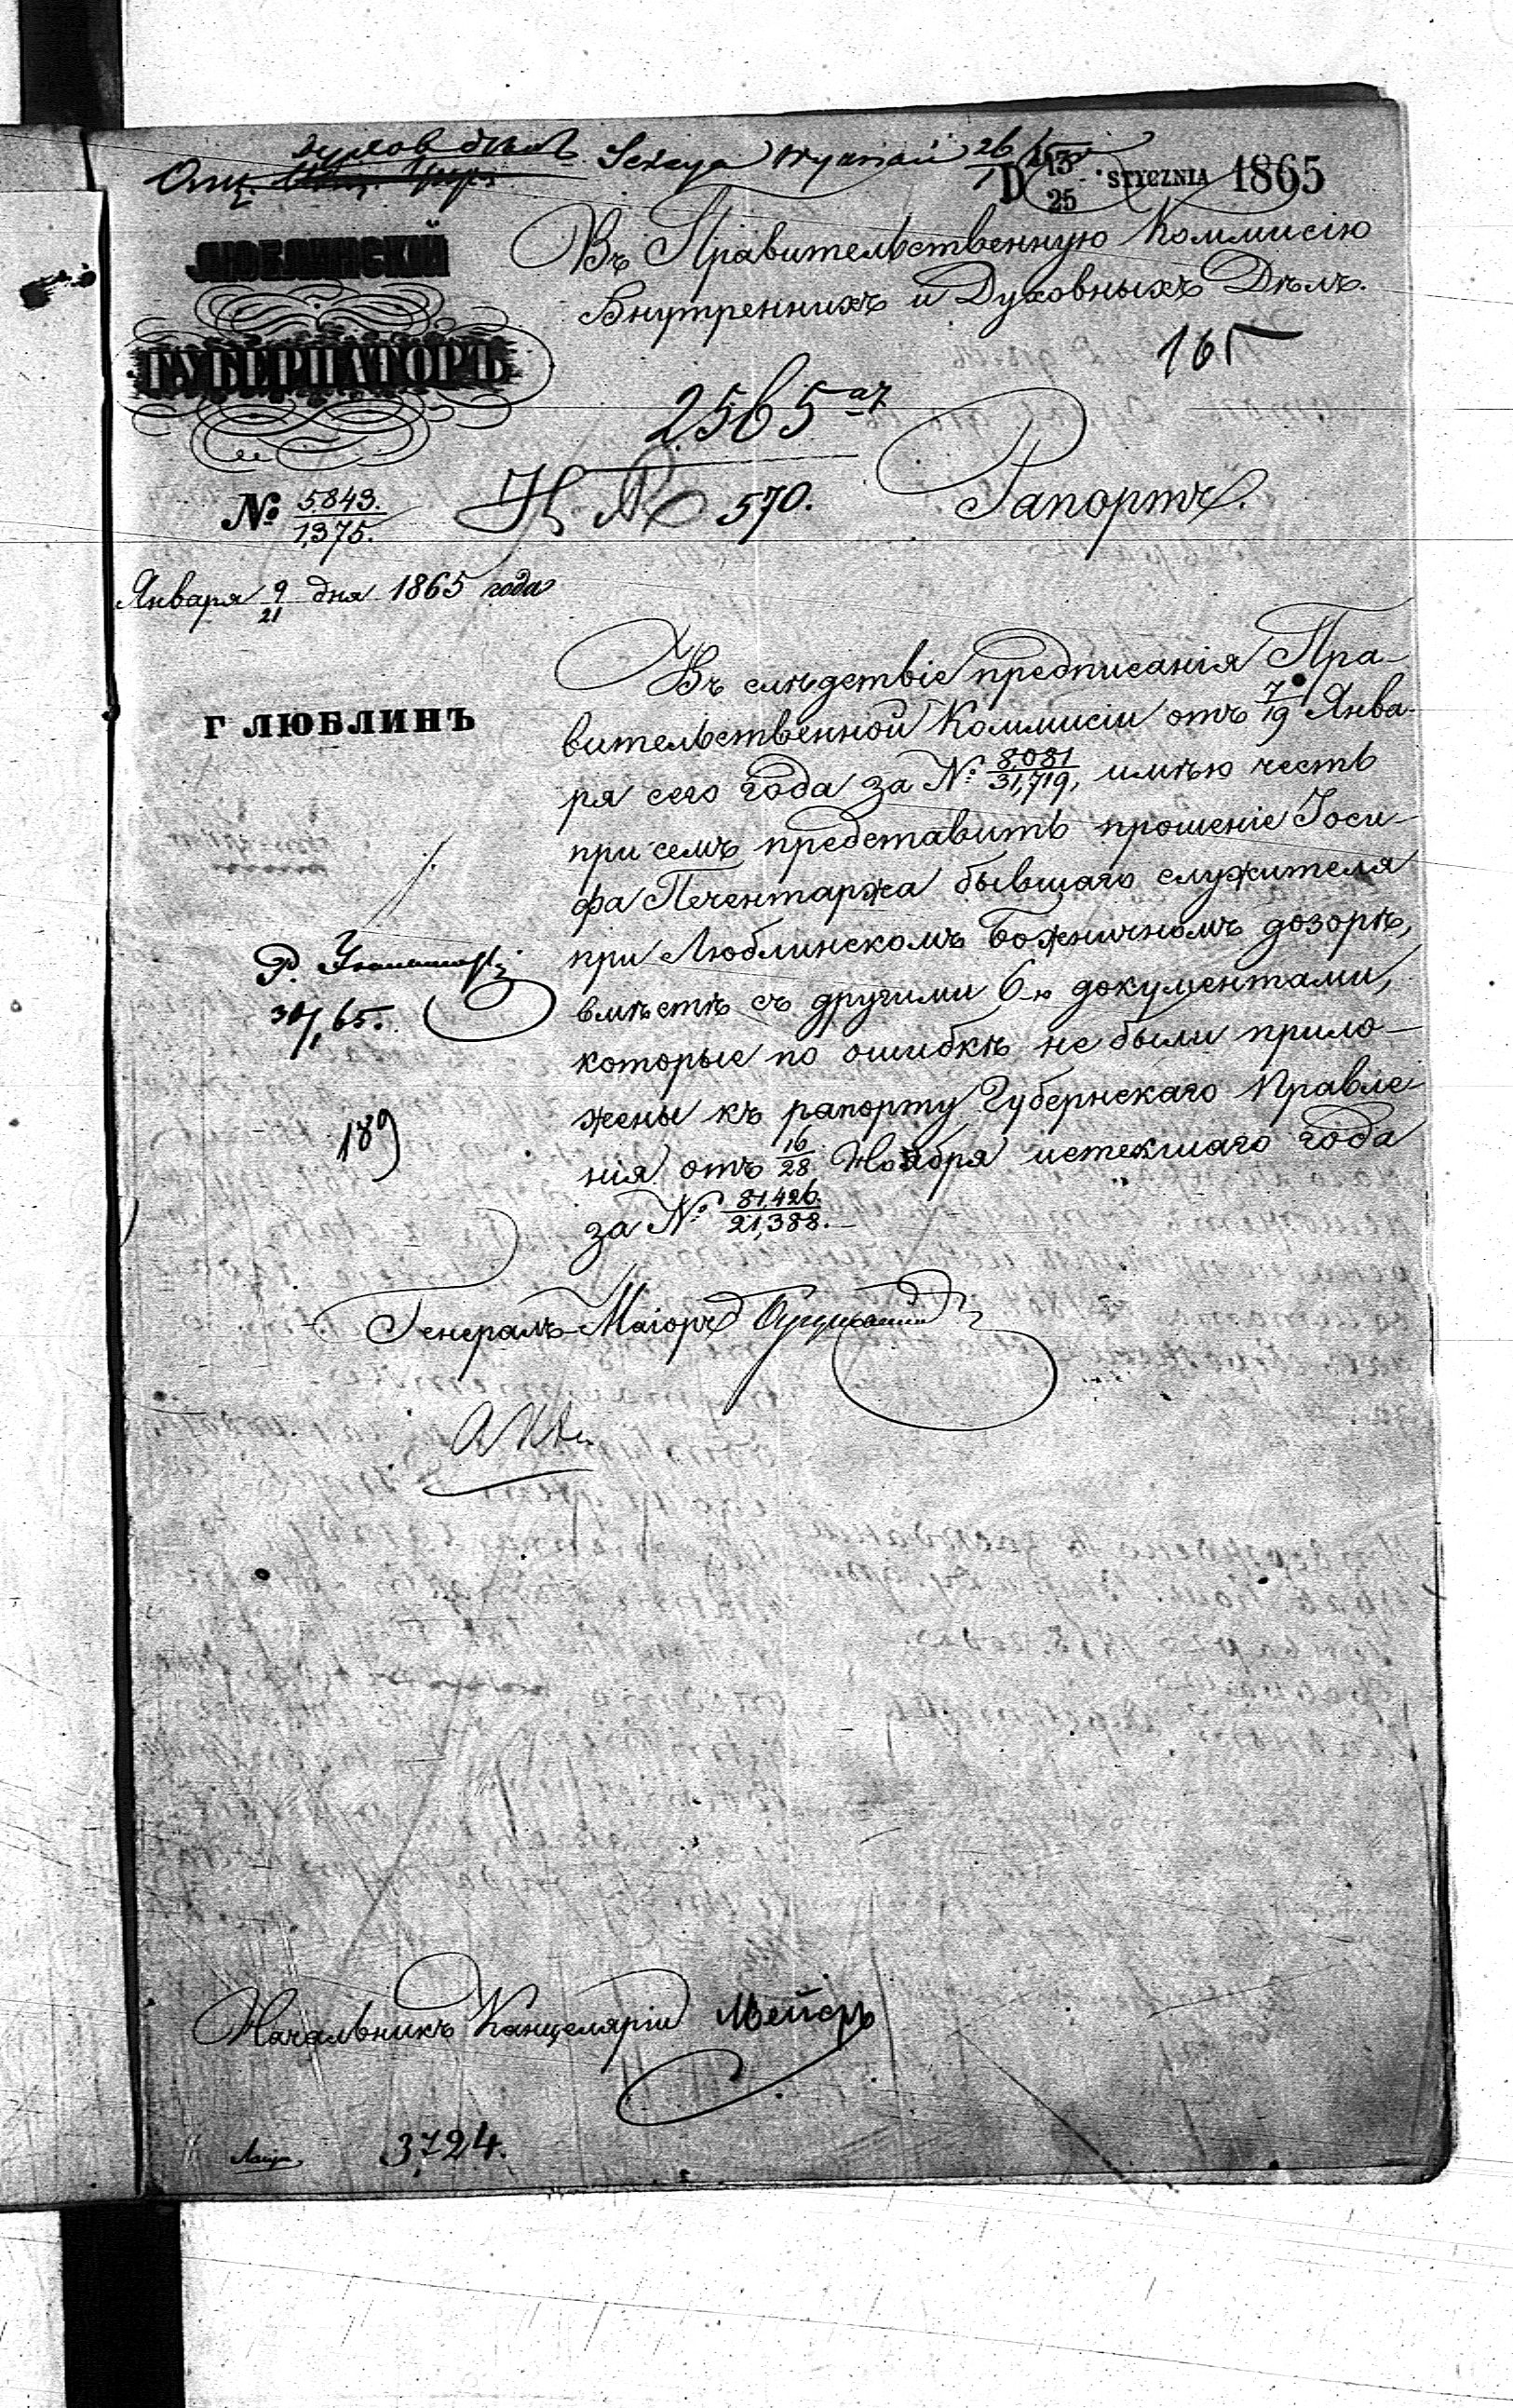 духов дѣлъ
Отд.
26/1 65
D 13/25 STYCZNIA 1865
ЛЮБЛИНСКІЙ
ГУБЕРНАТОРЪ
Въ Правительственную Коммисію
Внутреннихъ и Духовныхъ Дѣлъ.
165
2565
№ 5843./1,375.
570.
Рапортъ.
Января 9/21 дня 1865 года
Г ЛЮБЛИНЪ
Въ слѣдствіе предписанія Пра-
вительственной Коммисіи отъ 7/19 Янва-
ря сего года за № 8,081/31,719, имѣю честь
при семъ представить прошеніе Іоси-
фа Печентаржа бывшаго служителя
при Люблинскомъ Божничномъ дозорѣ,
вмѣстѣ съ другими 6-ю документами,
которые по ошибкѣ не были прило-
жены къ рапорту Губернскаго Правле-
нія отъ 16/28 Ноября истекшаго года
за № 81,426./21,388.
30/1 65.
189
Генералъ-Маіоръ
Начальникъ Канцеляріи Мейеръ
3724.